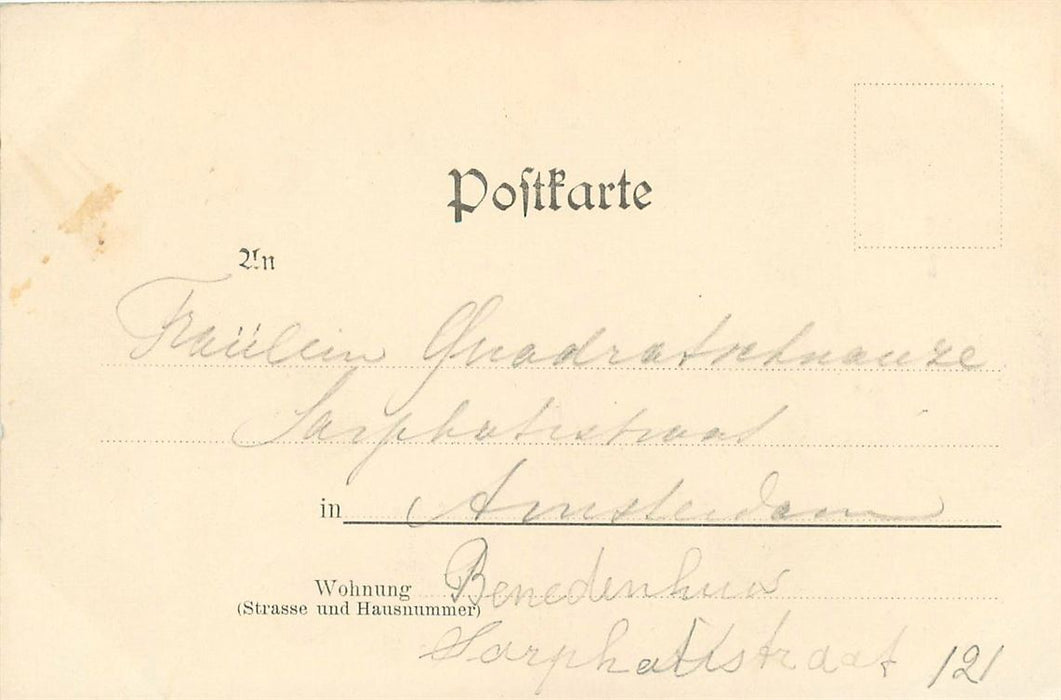 Postkarte
An
Fraülein Quadratschnauze
Sarphatistraat
in Amsterdam
Wohnung Benedenhuis
(Strasse und Hausnummer)
Sarphatistraat 121